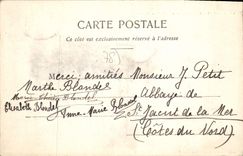 CARTE POSTALE
Ce côté est exclusivement réservé à l'adresse
785
Merci, amitiés
Marthe Blondel
Marie Blondel
Elisabeth Blondel
Anne-Marie Blondel
Monsieur J. Petit
Abbaye de
St Jacut de la Mer
(Côtes du Nord)